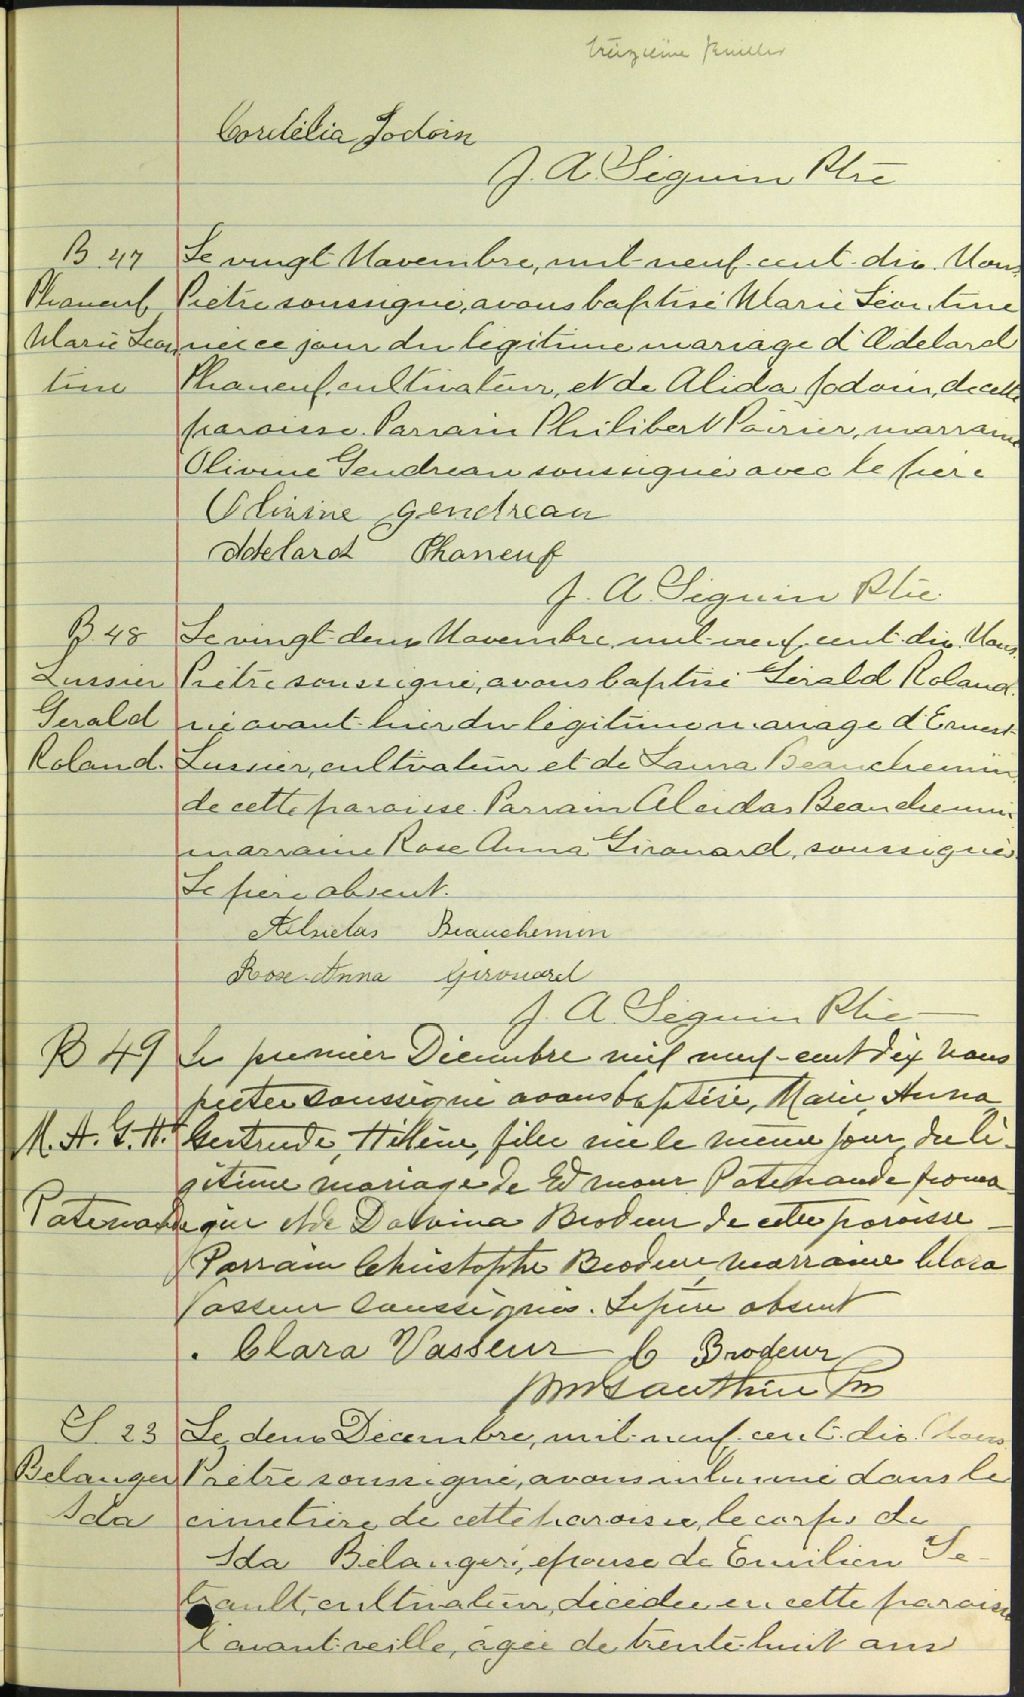 treizième feuillet
Cordélia Jodoin
J. A. Séguin Ptre
B. 47
Phaneuf
Marie Léon
tine
Le vingt Novembre, mil-neuf-cent-dix. Nous
Prêtre soussigné, avons baptisé Marie Léontine
née ce jour du légitime mariage d'Adelard
Phaneuf, cultivateur, et de Alida Jodoin, de cette
paroisse. Parrain Philibert Poirier, marraine
Olivine Gendreau soussignés avec le père
Olivine Gendreau
Adelard Phaneuf
J. A. Séguin Ptre.
B. 48
Lussier
Gerald
Roland.
Le vingt-deux Novembre, mil-neuf-cent-dix. Nous
Prêtre soussigné, avons baptisé Gérald Roland.
né avant-hier du légitime mariage d'Ernest
Lussier, cultivateur et de Laura Beauchemin,
de cette paroisse. Parrain Alcidas Beauchemin
marraine Rose Anna Girouard, soussignés.
Le père absent.
Alsidas Beauchemin
Rose-Anna Girouard
J. A. Séguin Ptre
B 49
M. A. G. H.
Patenaude
Le premier Décembre mil neuf-cent dix nous
prêtre soussigné avons baptisé, Marie, Anna,
Gertrude, Hélène, fille née le même jour, du lé-
gitime mariage de Edmour Patenaude froma-
ger et de Dorvina Brodeur de cette paroisse –
Parrain Christophe Brodeur, marraine Clara
Vasseur soussignés. Le père absent
. Clara Vasseur C Brodeur
Gauthier
S. 23
Belanger
Ida
Le deux Décembre, mil-neuf-cent-dix. Nous
Prêtre soussigné, avons inhumé dans le
cimetière de cette paroisse, le corps de
Ida Bélanger, épouse de Emilien Té-
trault, cultivateur, décédée en cette paroisse
l'avant-veille, âgée de trente-huit ans